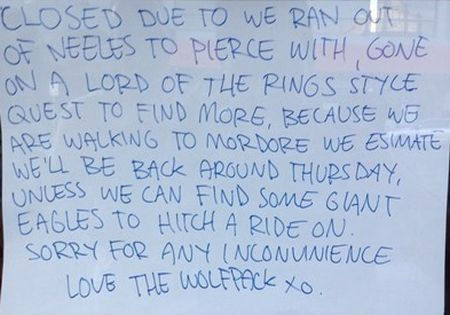 CLOSED DUE TO WE RAN OUT
OF NEELES TO PIERCE WITH, GONE
ON A LORD OF THE RINGS STYLE
QUEST TO FIND MORE, BECAUSE WE
ARE WALKING TO MORDORE WE ESIMATE
WE'LL BE BACK AROUND THURSDAY,
UNLESS WE CAN FIND SOME GIANT
EAGLES TO HITCH A RIDE ON.
SORRY FOR ANY INCONUNIENCE
LOVE THE WOLFPACK XO.